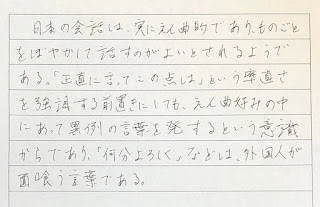 日本の会話は、実にえん曲的であり、ものごと
をぼやかして話すのがよいとされるようで
ある。「正直に言ってこの点は」という率直さ
を強調する前置きにしても、えん曲好みの中
にあって異例の言葉を発するという意識
からであり、「何分よろしく」などは、外国人が
面喰う言葉である。